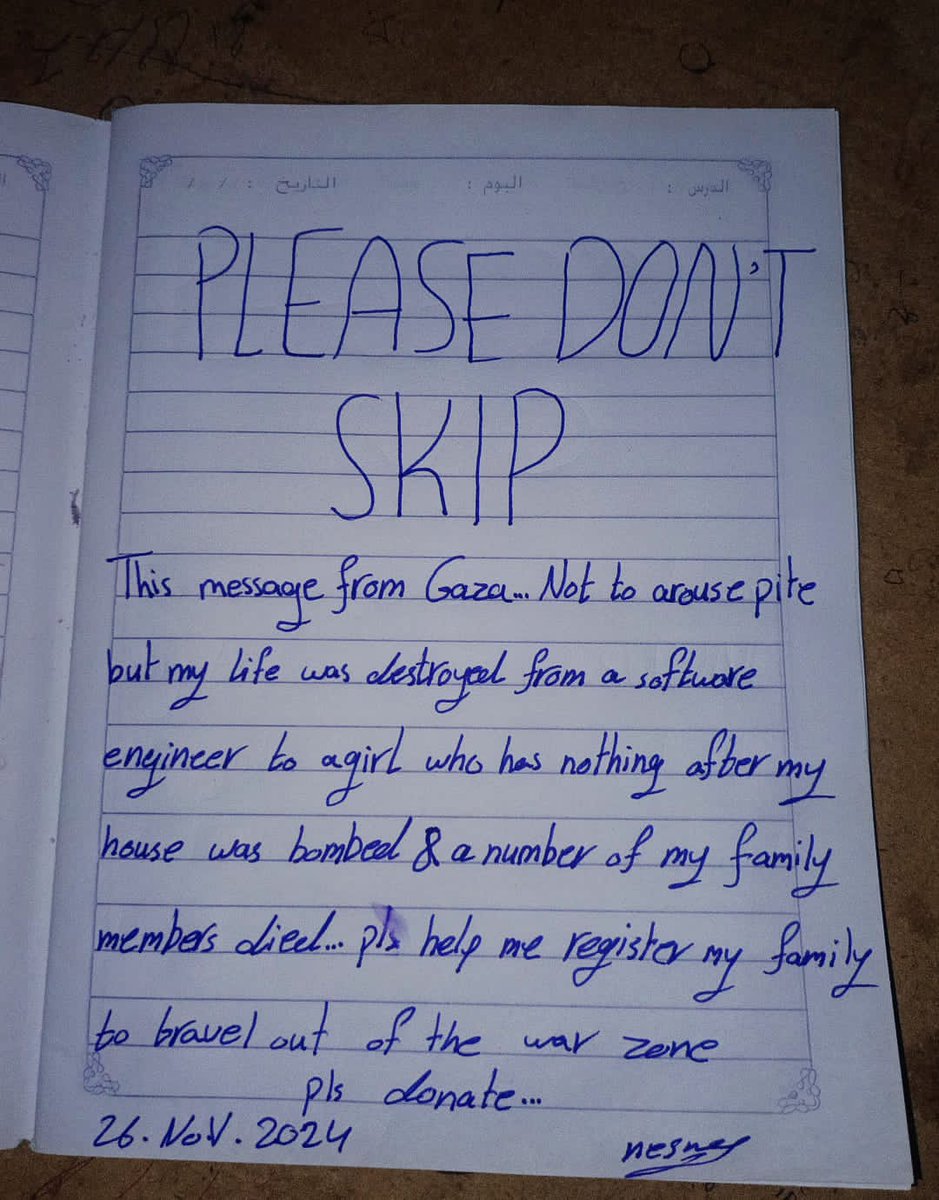 الدرس : اليوم : التاريخ : / /
PLEASE DON'T
SKIP
This message from Gaza... Not to arouse pite
but my life was destroyed from a software
engineer to a girl who has nothing after my
house was bombed & a number of my family
members died... pls help me register my family
to travel out of the war zone
pls donate...
26.NOV.2024